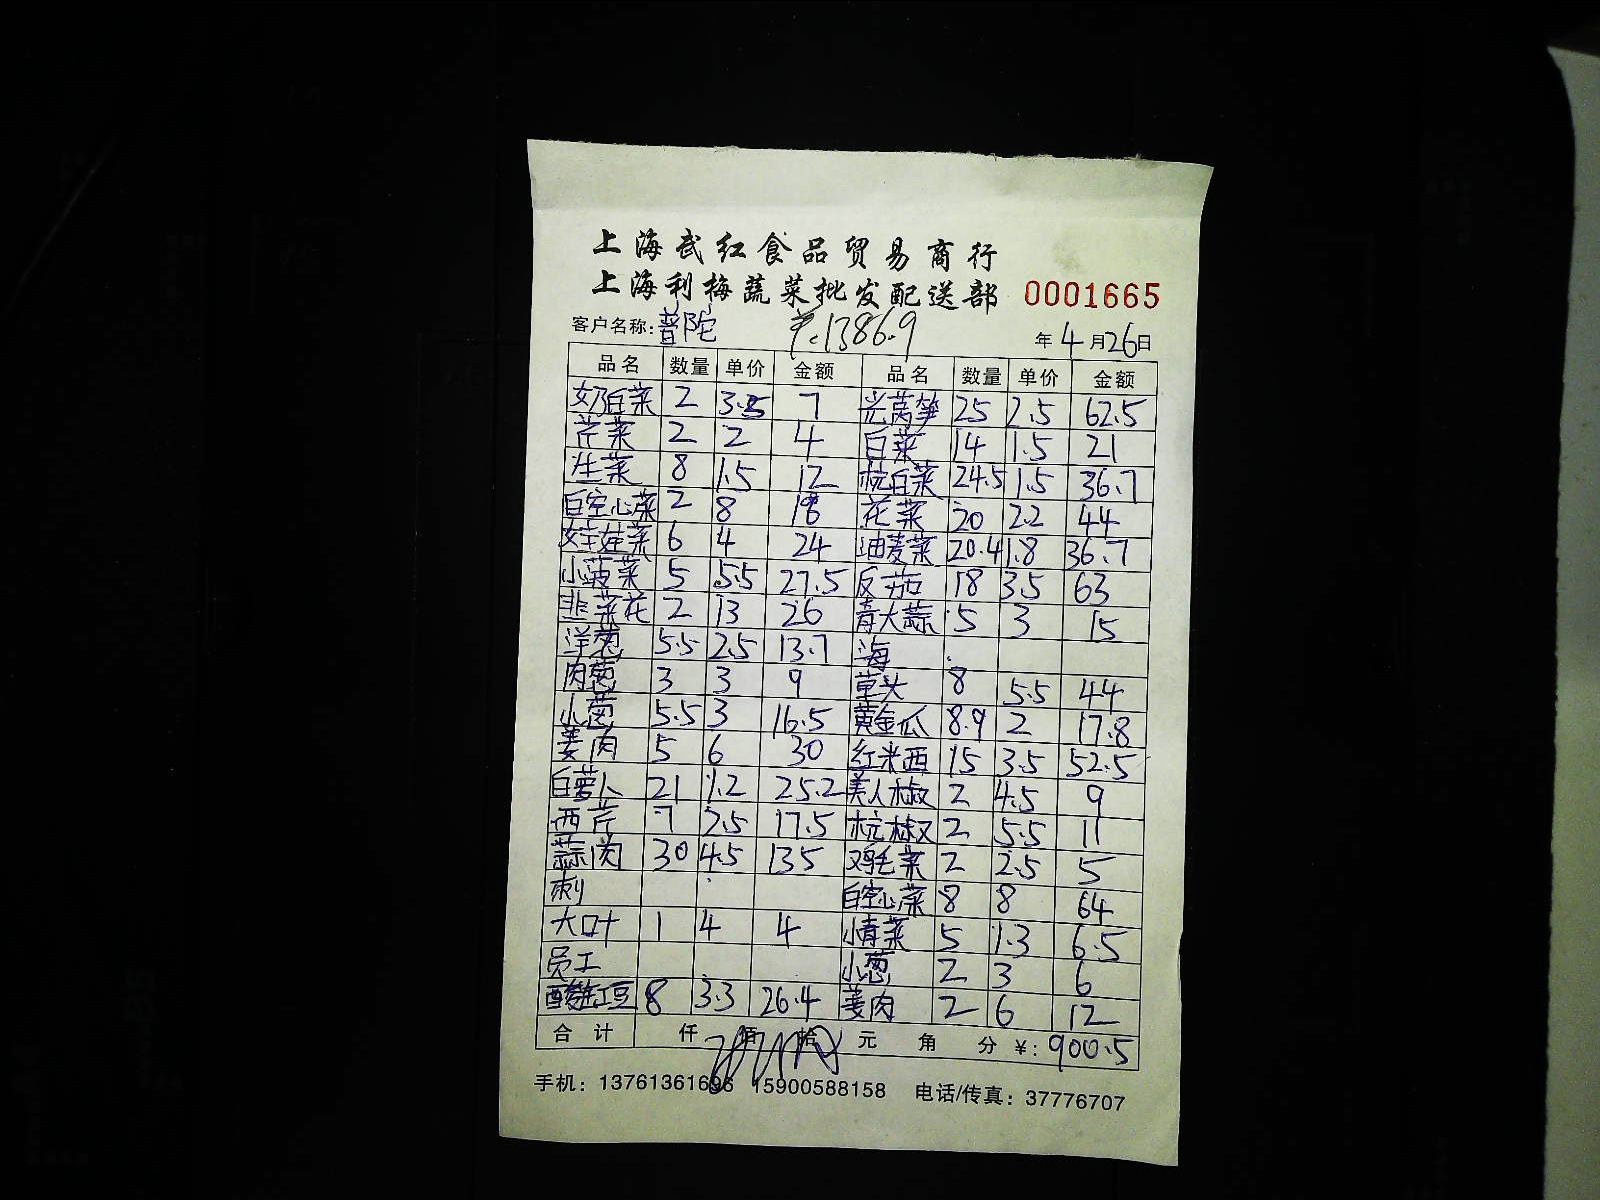 上海武红食品贸易商行
上海利梅蔬菜批发配送部 0001665
客户名称:普陀 1386.9 年4月26日
品名 数量 单价 金额 品名 数量 单价 金额
奶白菜 2 3.5 7 光莴笋 25 2.5 62.5
芹菜 2 2 4 白菜 14 1.5 21
生菜 8 1.5 12 杭白菜 24.5 1.5 36.7
白空心菜 2 8 16 花菜 20 2.2 44
娃娃菜 6 4 24 油麦菜 20.4 1.8 36.7
小菠菜 5 5.5 27.5 反茄 18 3.5 63
韭菜花 2 13 26 青大蒜 5 3 15
洋葱 5.5 2.5 13.7 海
肉葱 3 3 9 草头 8 5.5 44
小葱 5.5 3 16.5 黄金瓜 8.9 2 17.8
姜肉 5 6 30 红米西 15 3.5 52.5
白萝卜 21 1.2 25.2 美人椒 2 4.5 9
西芹 7 2.5 17.5 杭椒 2 5.5 11
蒜肉 30 4.5 135 鸡毛菜 2 2.5 5
刺 白空心菜 8 8 64
大叶 1 4 4 小青菜 5 1.3 6.5
员工 小葱 2 3 6
酸豇豆 8 3.3 26.4 姜肉 2 6 12
合计 仟 佰 拾 元 角 分 ¥:900.5
手机:13761361696 15900588158 电话/传真:37776707